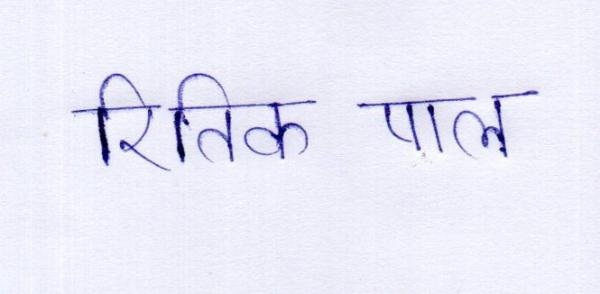 रितिक पाल